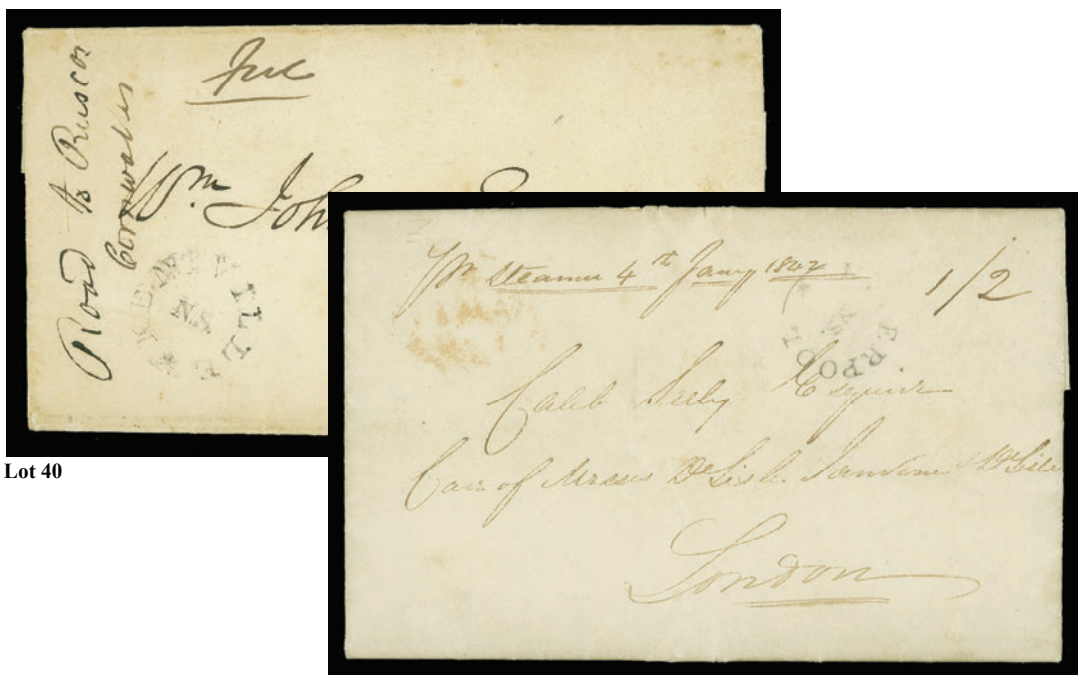 Free
Road to Ruscor
Cornwallis
Wm Joh
N.S.
Lot 40
Pr Steamer 4th Jany 1842
1/2
ERPOOL
NS.
Caleb Seely Esquire
Care of Messrs De Lisle Janvrin & De Lisle
London